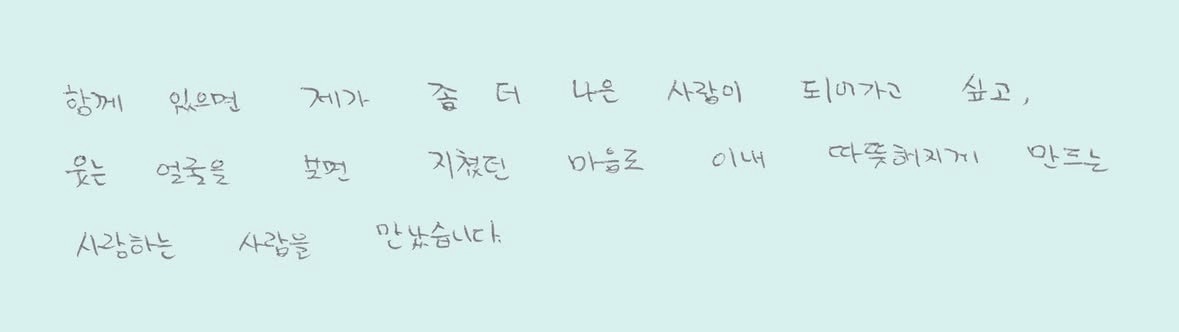 함께 있으면 제가 좀 더 나은 사람이 되어가고 싶고,
웃는 얼굴을 보면 지쳤던 마음도 이내 따뜻해지게 만드는
사랑하는 사람을 만났습니다.